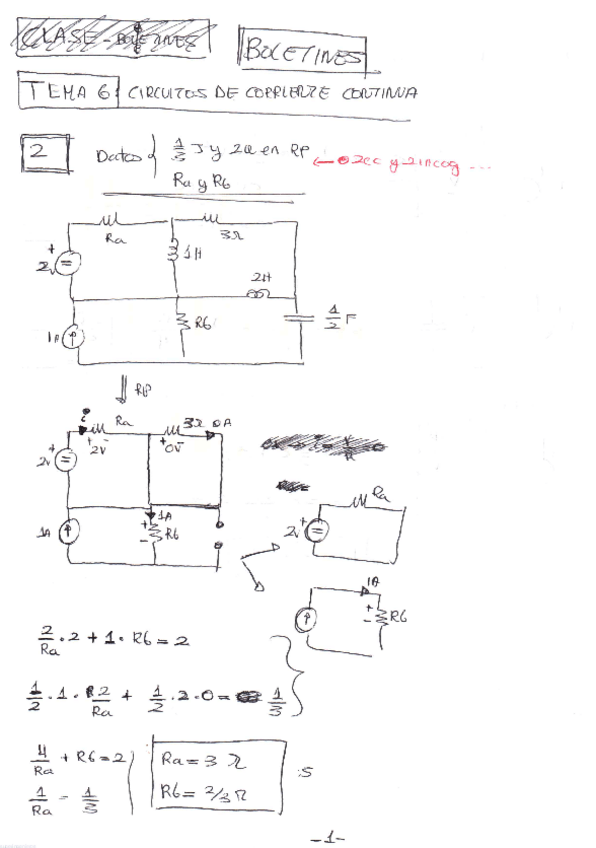 CLASE - BOLETINES
BOLETINES
TEMA 6 CIRCUITOS DE CORRIENTE CONTINUA
2 Datos { 1/3 J y 2W en RP
Ra y R6
2ec y 2incog ...
Ra 3Ω
2V + = 1H
2H
1A R6 1/2 F
RP
i Ra 3Ω 0A
+ 2V - + 0V -
2V + =
1A
1A + - R6
Ra
2V + =
1A
+ - R6
2/Ra · 2 + 1 · R6 = 2
1/2 · 1 · 2/Ra + 1/2 · 2 · 0 = 1/3
4/Ra + R6 = 2
1/Ra = 1/3
Ra = 3 Ω
R6 = 2/3 Ω
-1-